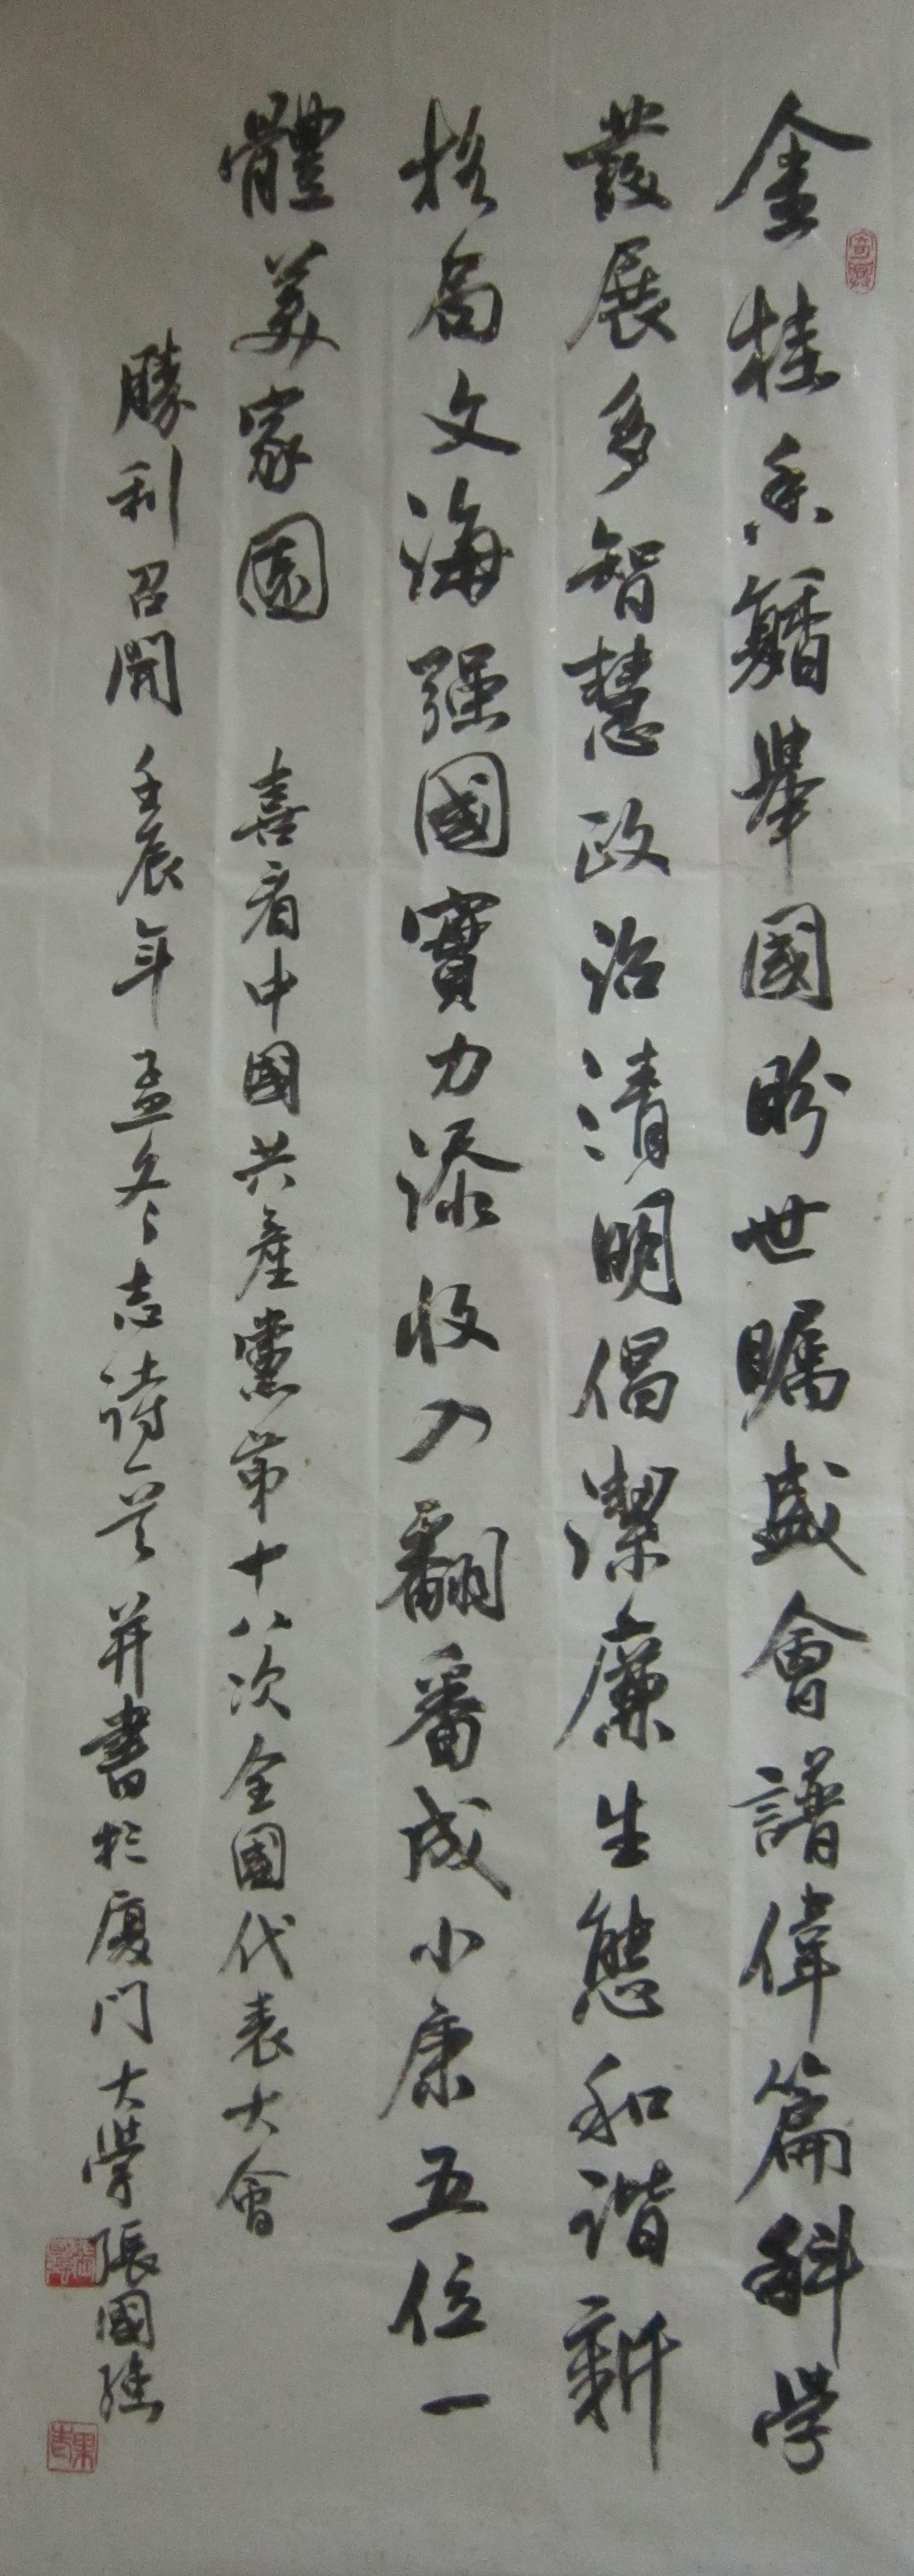 寄興
金桂香舉國盼世矚盛會譜偉篇科學
發展多智慧政治清明倡潔廉生態和諧新
格局文海强國實力添收入翻番成小康五位一
體美家園 喜看中國共產黨第十八次全國代表大會
勝利召開 壬辰年孟冬志詩一首并書於厦門大學張國